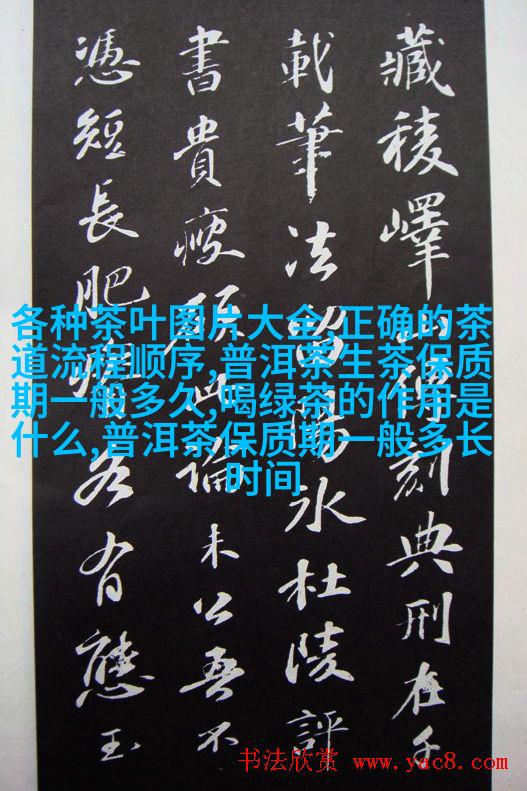 藏稜嶧山傳刻典刑在千
載筆法留陽氷杜陵評
書貴瘦硬此論未公吾不
憑短長肥瘠各有態玉
各种茶叶图片大全,正确的茶
道流程顺序,普洱茶生茶保质
期一般多久,喝绿茶的作用是
什么,普洱茶保质期一般多长
时间
书法欣赏 www.yac8.com